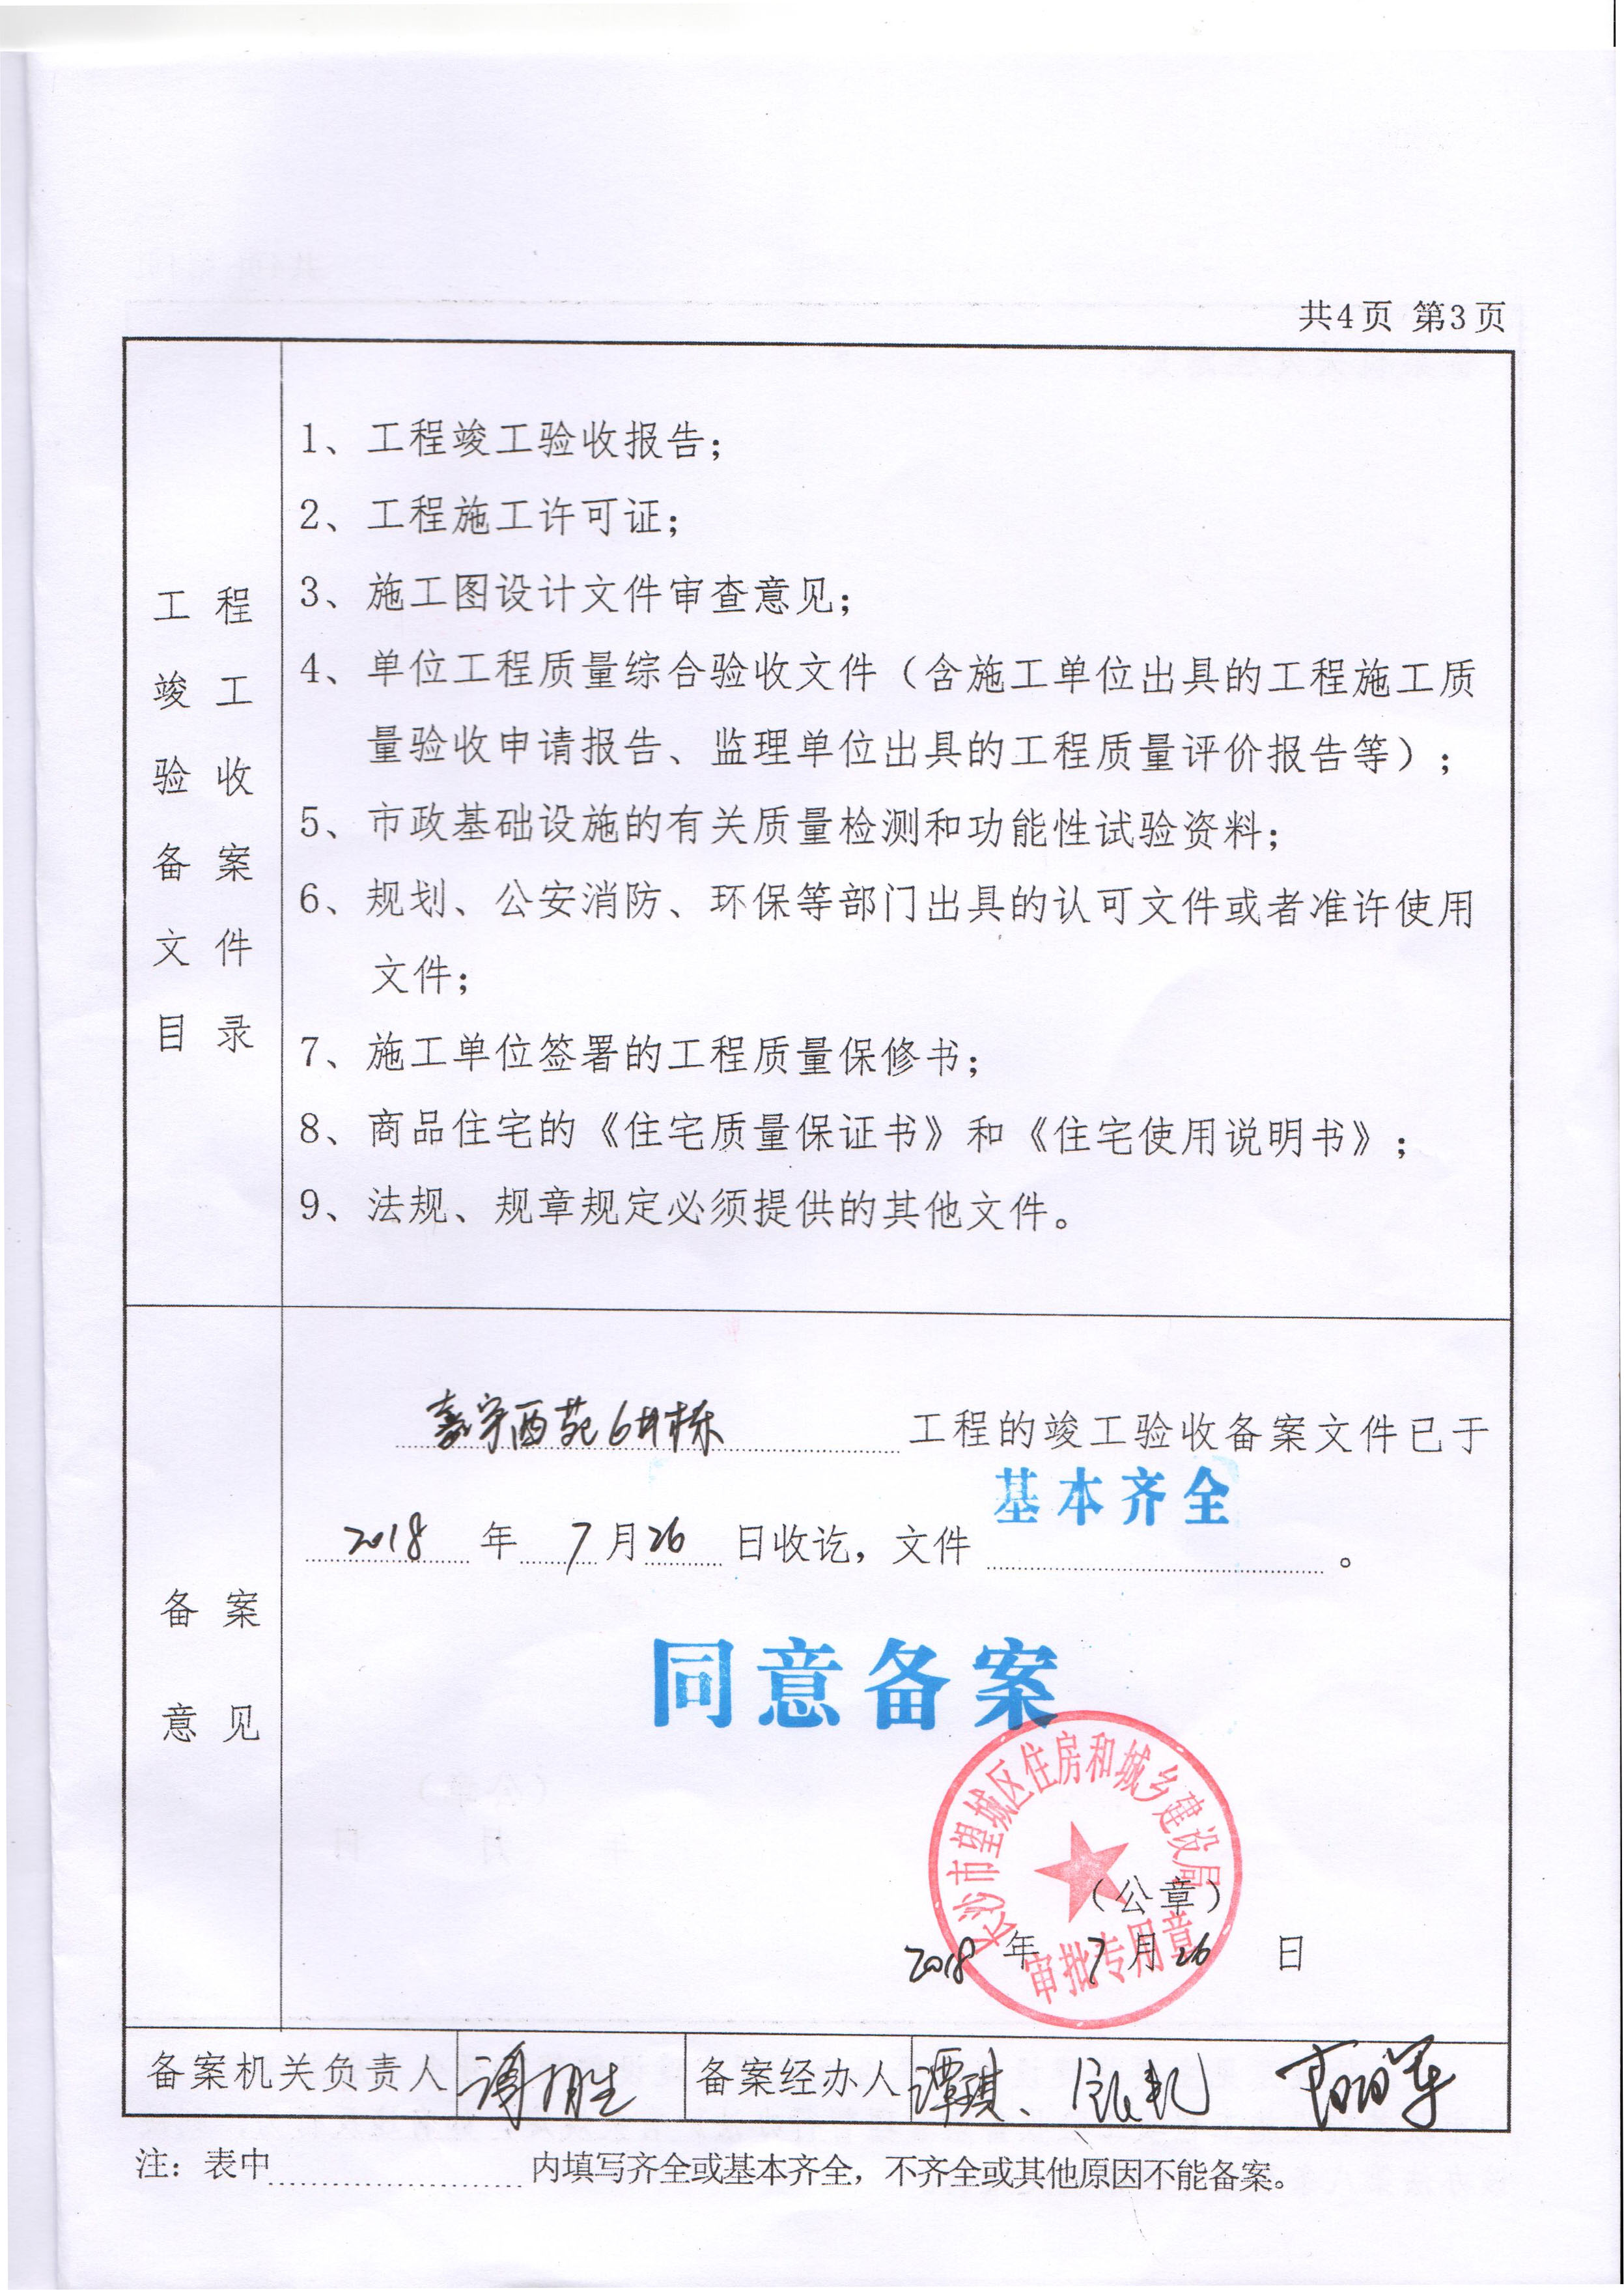 共4页 第3页
工程
竣工
验收
备案
文件
目录
1、工程竣工验收报告；
2、工程施工许可证；
3、施工图设计文件审查意见；
4、单位工程质量综合验收文件（含施工单位出具的工程施工质
量验收申请报告、监理单位出具的工程质量评价报告等）；
5、市政基础设施的有关质量检测和功能性试验资料；
6、规划、公安消防、环保等部门出具的认可文件或者准许使用
文件；
7、施工单位签署的工程质量保修书；
8、商品住宅的《住宅质量保证书》和《住宅使用说明书》；
9、法规、规章规定必须提供的其他文件。
备案
意见
嘉宇西苑6#栋 工程的竣工验收备案文件已于
基本齐全
2018 年 7 月 26 日收讫，文件 。
同意备案
长沙市望城区住房和城乡建设局
（公章）
审批专用章
2018 年 7 月 26 日
备案机关负责人 备案经办人 谭琪、
注：表中 内填写齐全或基本齐全，不齐全或其他原因不能备案。